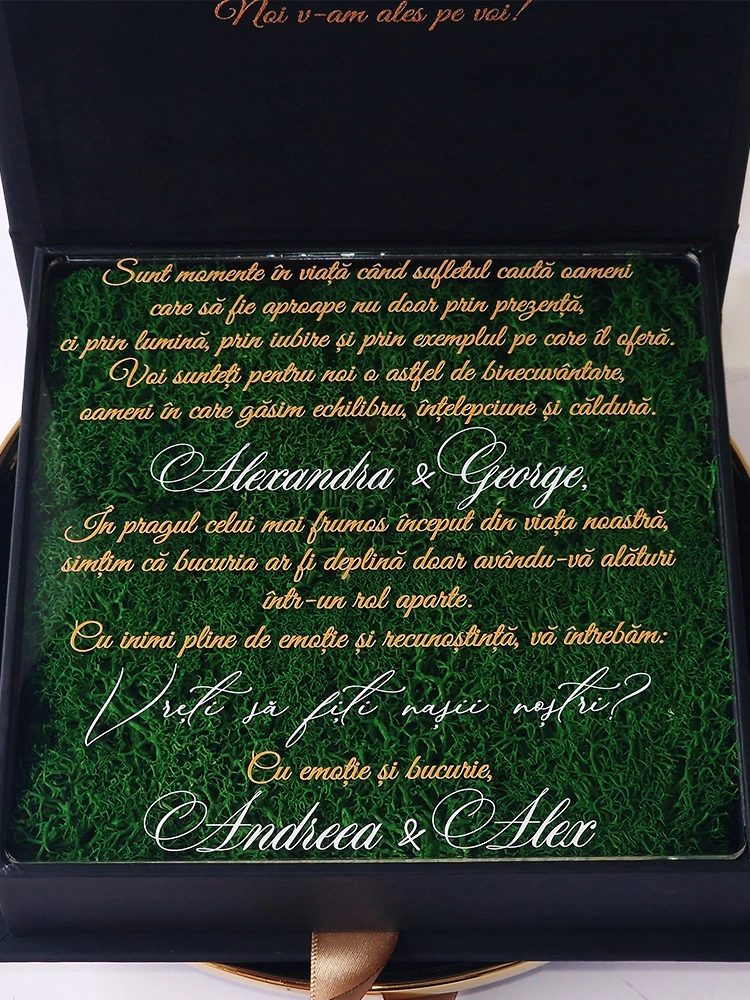 Noi v-am ales pe voi!
Sunt momente în viață când sufletul caută oameni
care să fie aproape nu doar prin prezență,
ci prin lumină, prin iubire și prin exemplul pe care îl oferă.
Voi sunteți pentru noi o astfel de binecuvântare,
oameni în care găsim echilibru, înțelepciune și căldură.
Alexandra & George,
În pragul celui mai frumos început din viața noastră,
simțim că bucuria ar fi deplină doar avându-vă alături
într-un rol aparte.
Cu inimi pline de emoție și recunoștință, vă întrebăm:
Vreți să fiți nașii noștri?
Cu emoție și bucurie,
Andreea & Alex